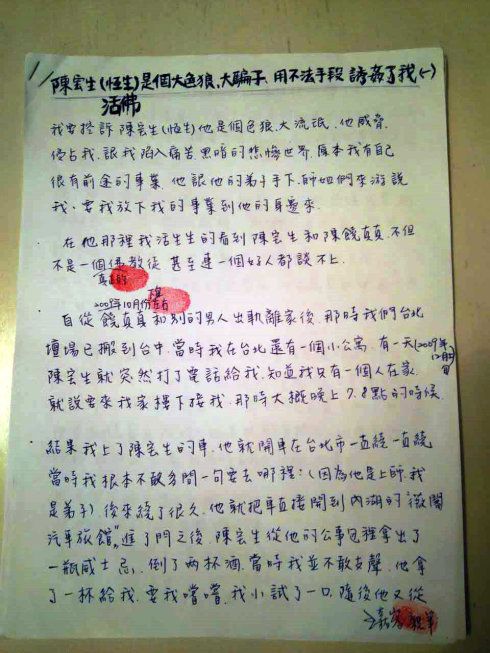 陳宏生(恆生)是個大色狼,大騙子,用不法手段誘姦了我(一)
活佛
我要控訴陳宏生(恆生)他是個色狼.大流氓.他威脅.
侵占我.讓我陷入痛苦.黑暗的悲慘世界.原本我有自己
很有前途的事業.他讓他的弟子手下.師姐們來游說
我.要我放下我的事業到他的身邊來.
在他那裡我活生生的看到陳宏生和陳饒真真.不但
不是一個佛教徒 甚至連一個好人都談不上.
真正的
2009年10月份左右
自從饒真真和別的男人出軌離家後.那時我們台北
壇場已搬到台中.當時我在台北還有一個小公寓.有一天(2009年12月旬)
陳宏生就突然打了電話給我.知道我只有一個人在家.
就說要來我家樓下接我.那時大概晚上7.8點的時候.
結果我上了陳宏生的車.他就開車在台北市一直繞一直繞
當時我根本不敢多問一句要去哪裡:(因為他是上師.我
是弟子)後來繞了很久.他就把車直接開到內湖的"薇閣
汽車旅館".進了門之後.陳宏生從他的公事包裡拿出了
一瓶威士忌.倒了兩杯酒.當時我並不敢支聲.他拿
了一杯給我.要我嚐嚐.我小試了一口.隨後他又從